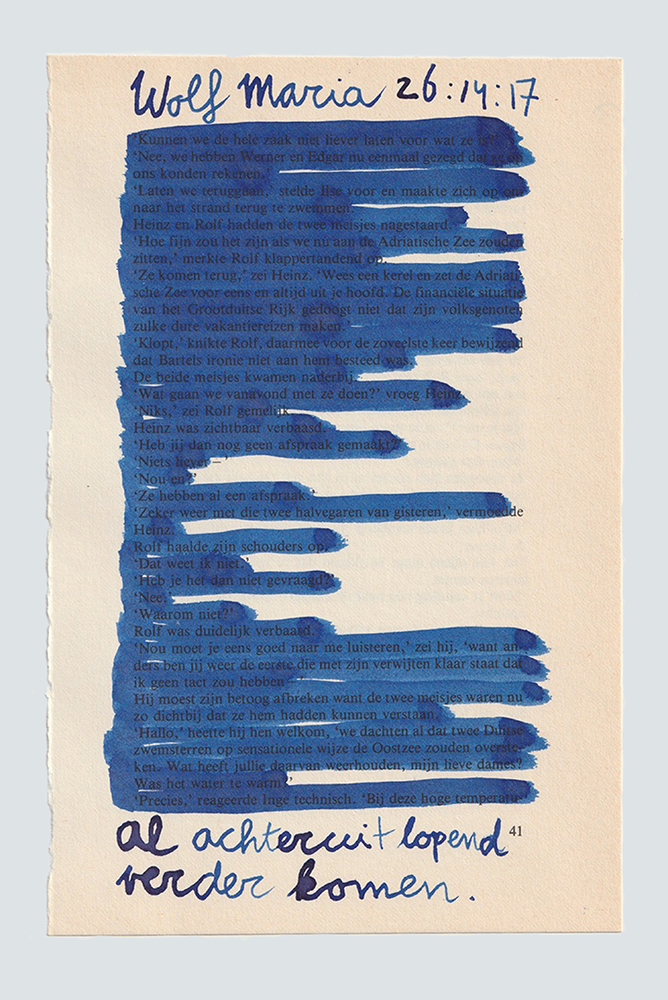 Wolf Maria 26:14:17
‘Kunnen we de hele zaak niet liever laten voor wat ze is?’
‘Nee, we hebben Werner en Edgar nu eenmaal gezegd dat ze op
ons konden rekenen.’
‘Laten we teruggaan,’ stelde Ilse voor en maakte zich op om
naar het strand terug te zwemmen.
Heinz en Rolf hadden de twee meisjes nagestaard.
‘Hoe fijn zou het zijn als we nu aan de Adriatische Zee zouden
zitten,’ merkte Rolf klappertandend op.
‘Ze komen terug,’ zei Heinz. ‘Wees een kerel en zet de Adriati-
sche Zee voor eens en altijd uit je hoofd. De financiële situatie
van het Grootduitse Rijk gedoogt niet dat zijn volksgenoten
zulke dure vakantiereizen maken.’
‘Klopt,’ knikte Rolf, daarmee voor de zoveelste keer bewijzend
dat Bartels ironie niet aan hem besteed was.
De beide meisjes kwamen naderbij.
‘Wat gaan we vanavond met ze doen?’ vroeg Heinz.
‘Niks,’ zei Rolf gemelijk.
Heinz was zichtbaar verbaasd.
‘Heb jij dan nog geen afspraak gemaakt?’
‘Niets liever –’
‘Nou en?’
‘Ze hebben al een afspraak.’
‘Zeker weer met die twee halvegaren van gisteren,’ vermoedde
Heinz.
Rolf haalde zijn schouders op.
‘Dat weet ik niet.’
‘Heb je het dan niet gevraagd?’
‘Nee.’
‘Waarom niet?’
Rolf was duidelijk verbaasd.
‘Nou moet je eens goed naar me luisteren,’ zei hij, ‘want an-
ders ben jij weer de eerste die met zijn verwijten klaar staat dat
ik geen tact zou hebben –’
Hij moest zijn betoog afbreken want de twee meisjes waren nu
zo dichtbij dat ze hem hadden kunnen verstaan.
‘Hallo,’ heette hij hen welkom, ‘we dachten al dat twee Duitse
zwemsterren op sensationele wijze de Oostzee zouden overste-
ken. Wat heeft jullie daarvan weerhouden, mijn lieve dames?
Was het water te warm?’
‘Precies,’ reageerde Inge technisch. ‘Bij deze hoge temperatu-
41
al achteruit lopend
verder komen.